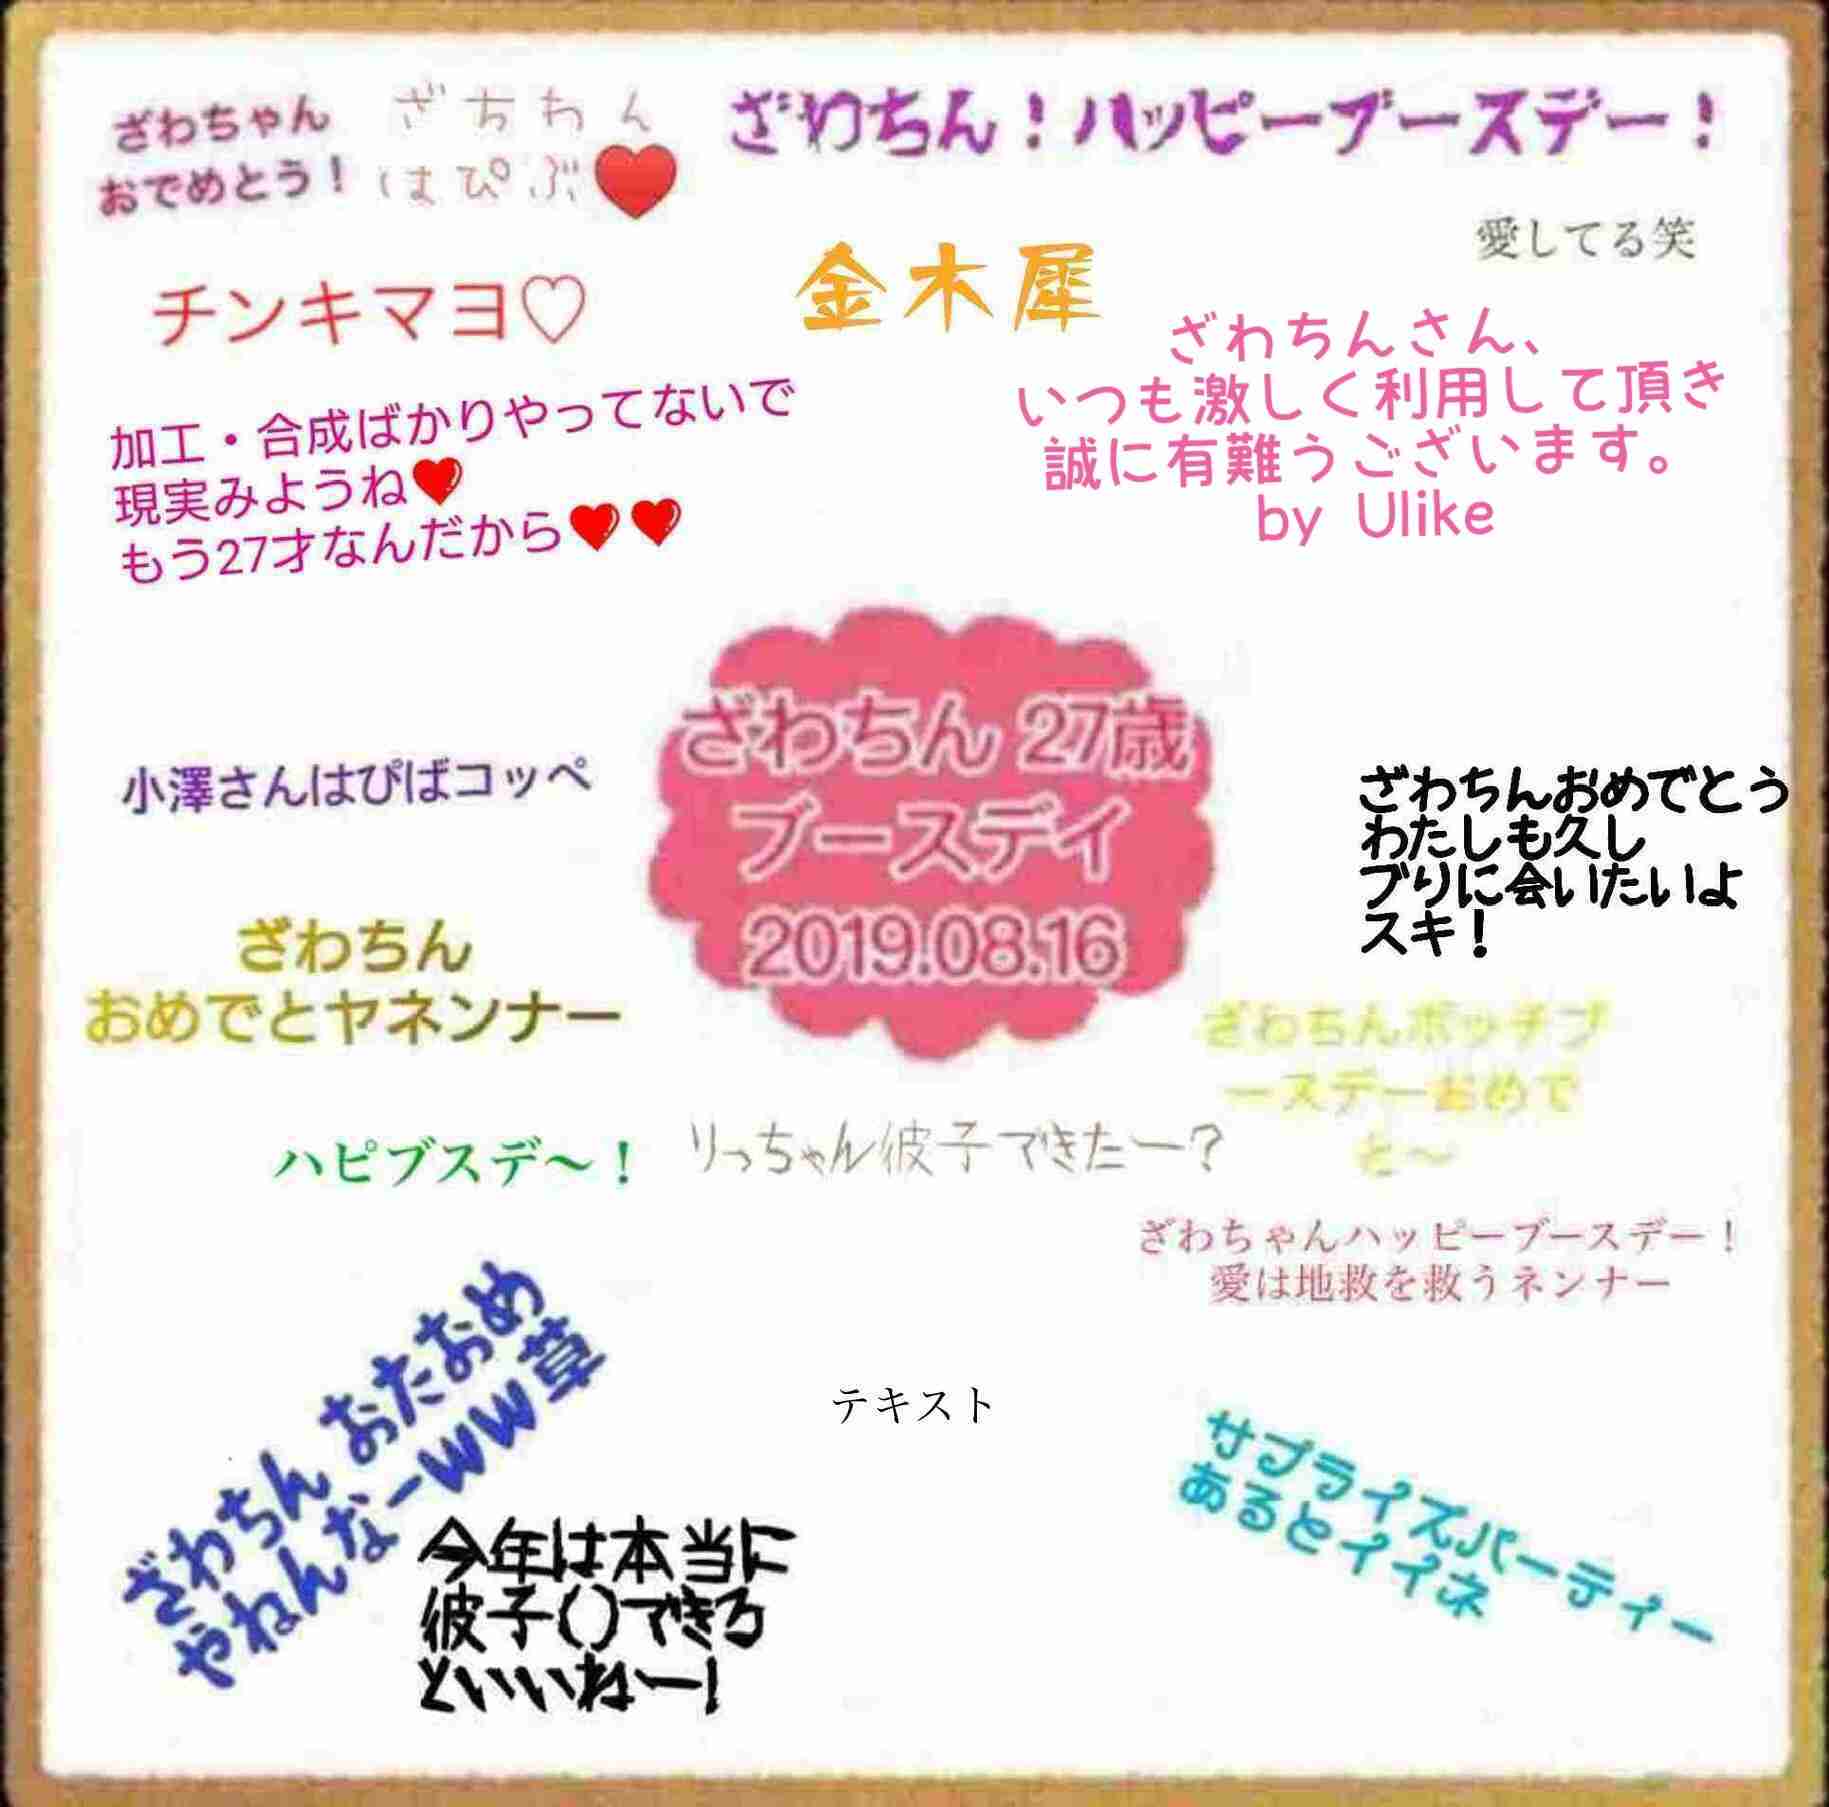 ざわちゃん
おでめとう！
ざちわん
はぴぶ❤
ざわちん！ハッピーブースデー！
愛してる笑
チンキマヨ♡
金木犀
ざわちんさん、
いつも激しく利用して頂き
誠に有難うございます。
by Ulike
加工・合成ばかりやってないで
現実みようね❤
もう27才なんだから❤❤
ざわちん 27歳
ブースデイ
2019.08.16
小澤さんはぴばコッペ
ざわちんおめでとう
わたしも久し
ブリに会いたいよ
スキ！
ざわちん
おめでとヤネンナー
ざわちんボッチブ
ースデーおめで
と〜
ハピブスデ〜！
りっちゃん彼子できたー？
ざわちゃんハッピーブースデー！
愛は地救を救うネンナー
ざわちん おたおめ
やねんなーww草
テキスト
今年は本当に
彼子()できろ
といいねー!
サプライズパーティー
あるとイイネ